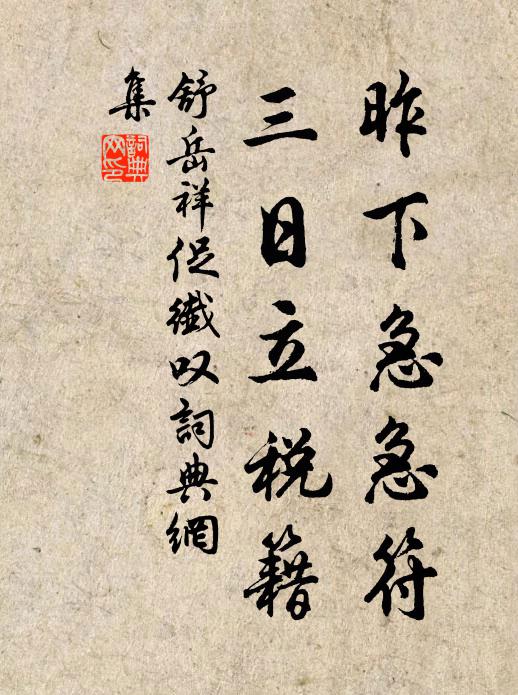 昨下急急符
三日立税籍
舒岳祥促織叹詞典網
集
詞典
网印